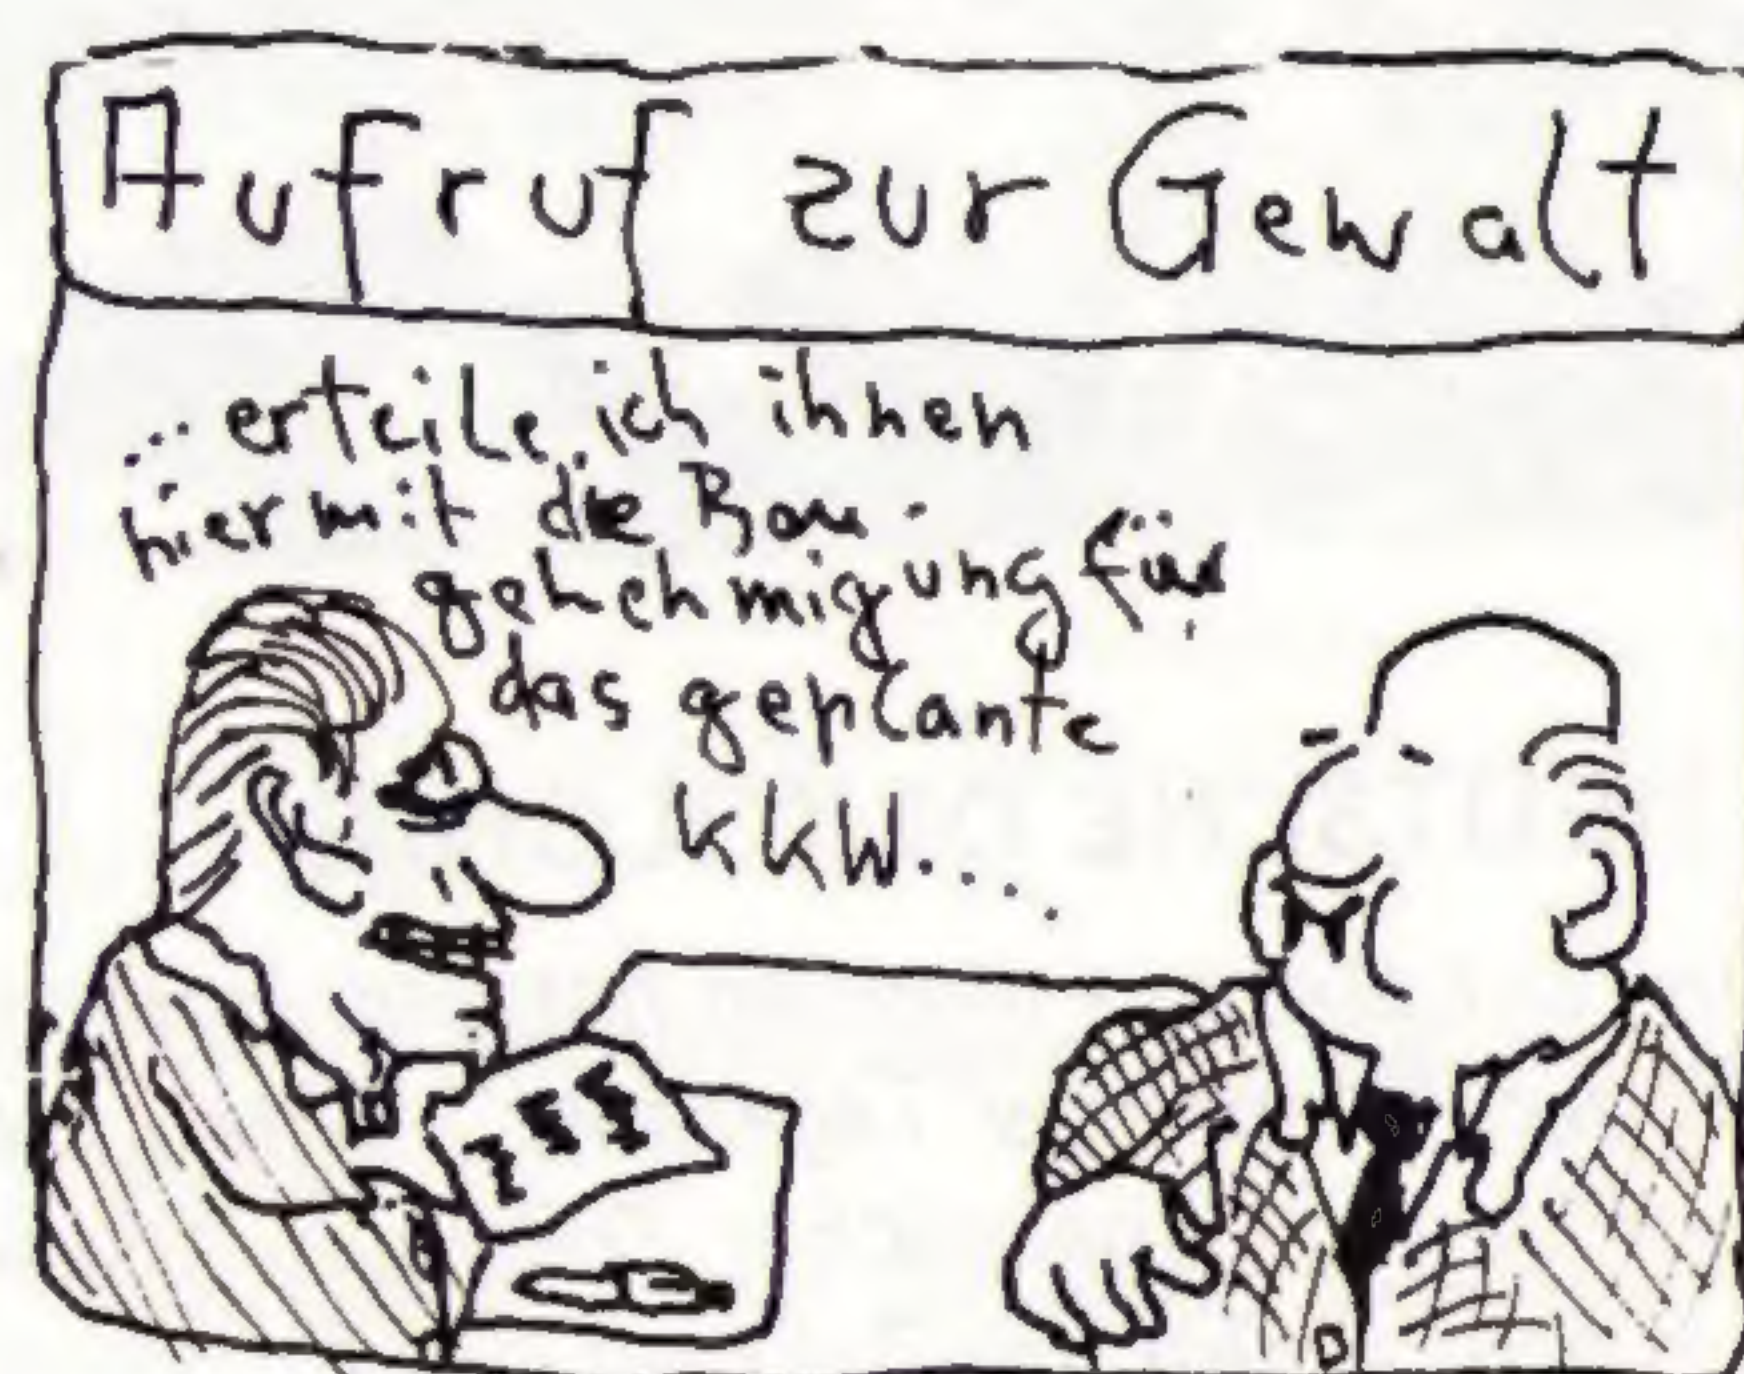 Aufruf zur Gewalt
...erteile ich ihnen
hiermit die Bau-
genehmigung für
das geplante
KKW....